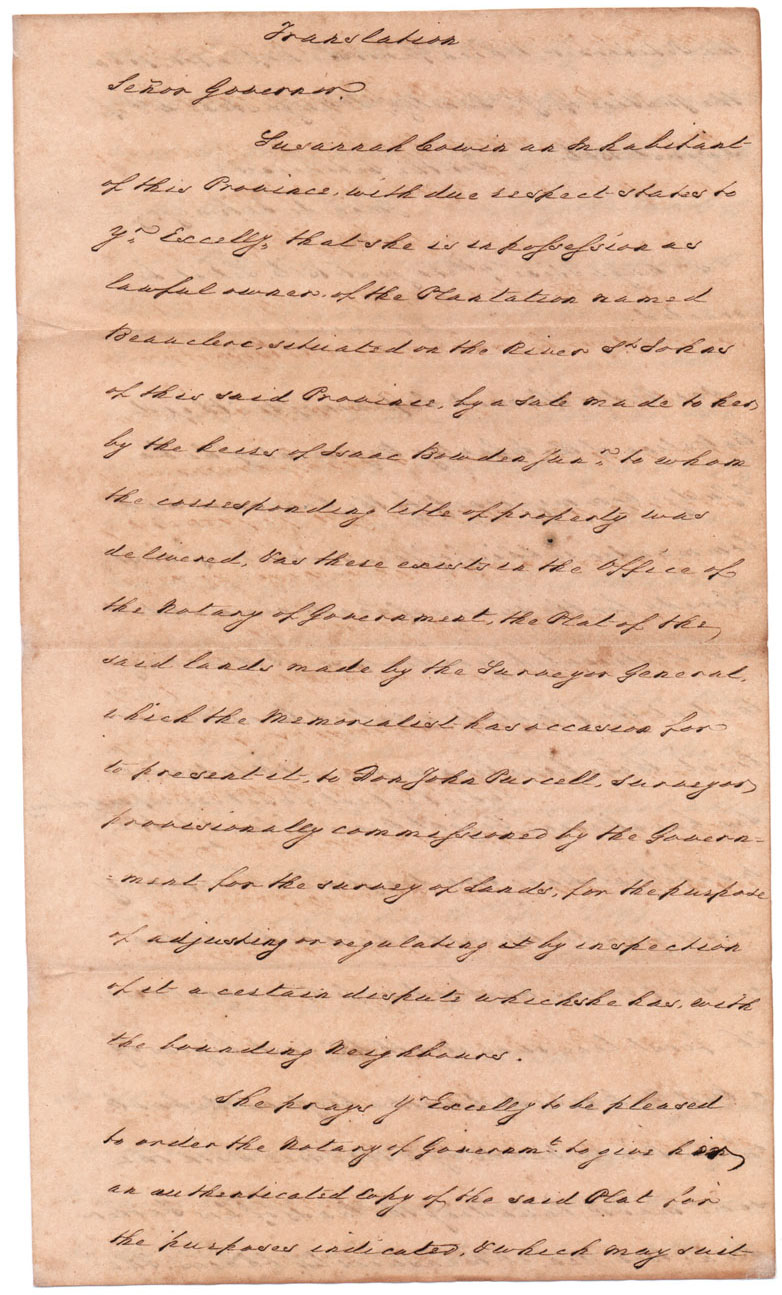 Translation
Señor Governor.
Susannah Cowin an Inhabitant
of this Province, with due respect states to
Yr. Excelly, that she is in possession as
lawful owner, of the Plantation named
Beauclerc, situated on the River St. Johns
of this said Province, by a sale made to her
by the heirs of Isaac Bowden Junr. to whom
the corresponding title of property was
delivered, & as there exists in the Office of
the Notary of Government, the Plat of the
said lands made by the Surveyor General,
which the Memorialist has occasion for
to present it, to Don John Purcell, surveyor
provisionally commissioned by the Govern-
-ment for the survey of lands, for the purpose
of adjusting or regulating it by inspection
of it a certain dispute which she has, with
the bounding Neighbours.
She prays Yr Excelly to be pleased
to order the Notary of Governmt. to give her
an authenticated Copy of the said Plat for
the purposes indicated, & which may suit